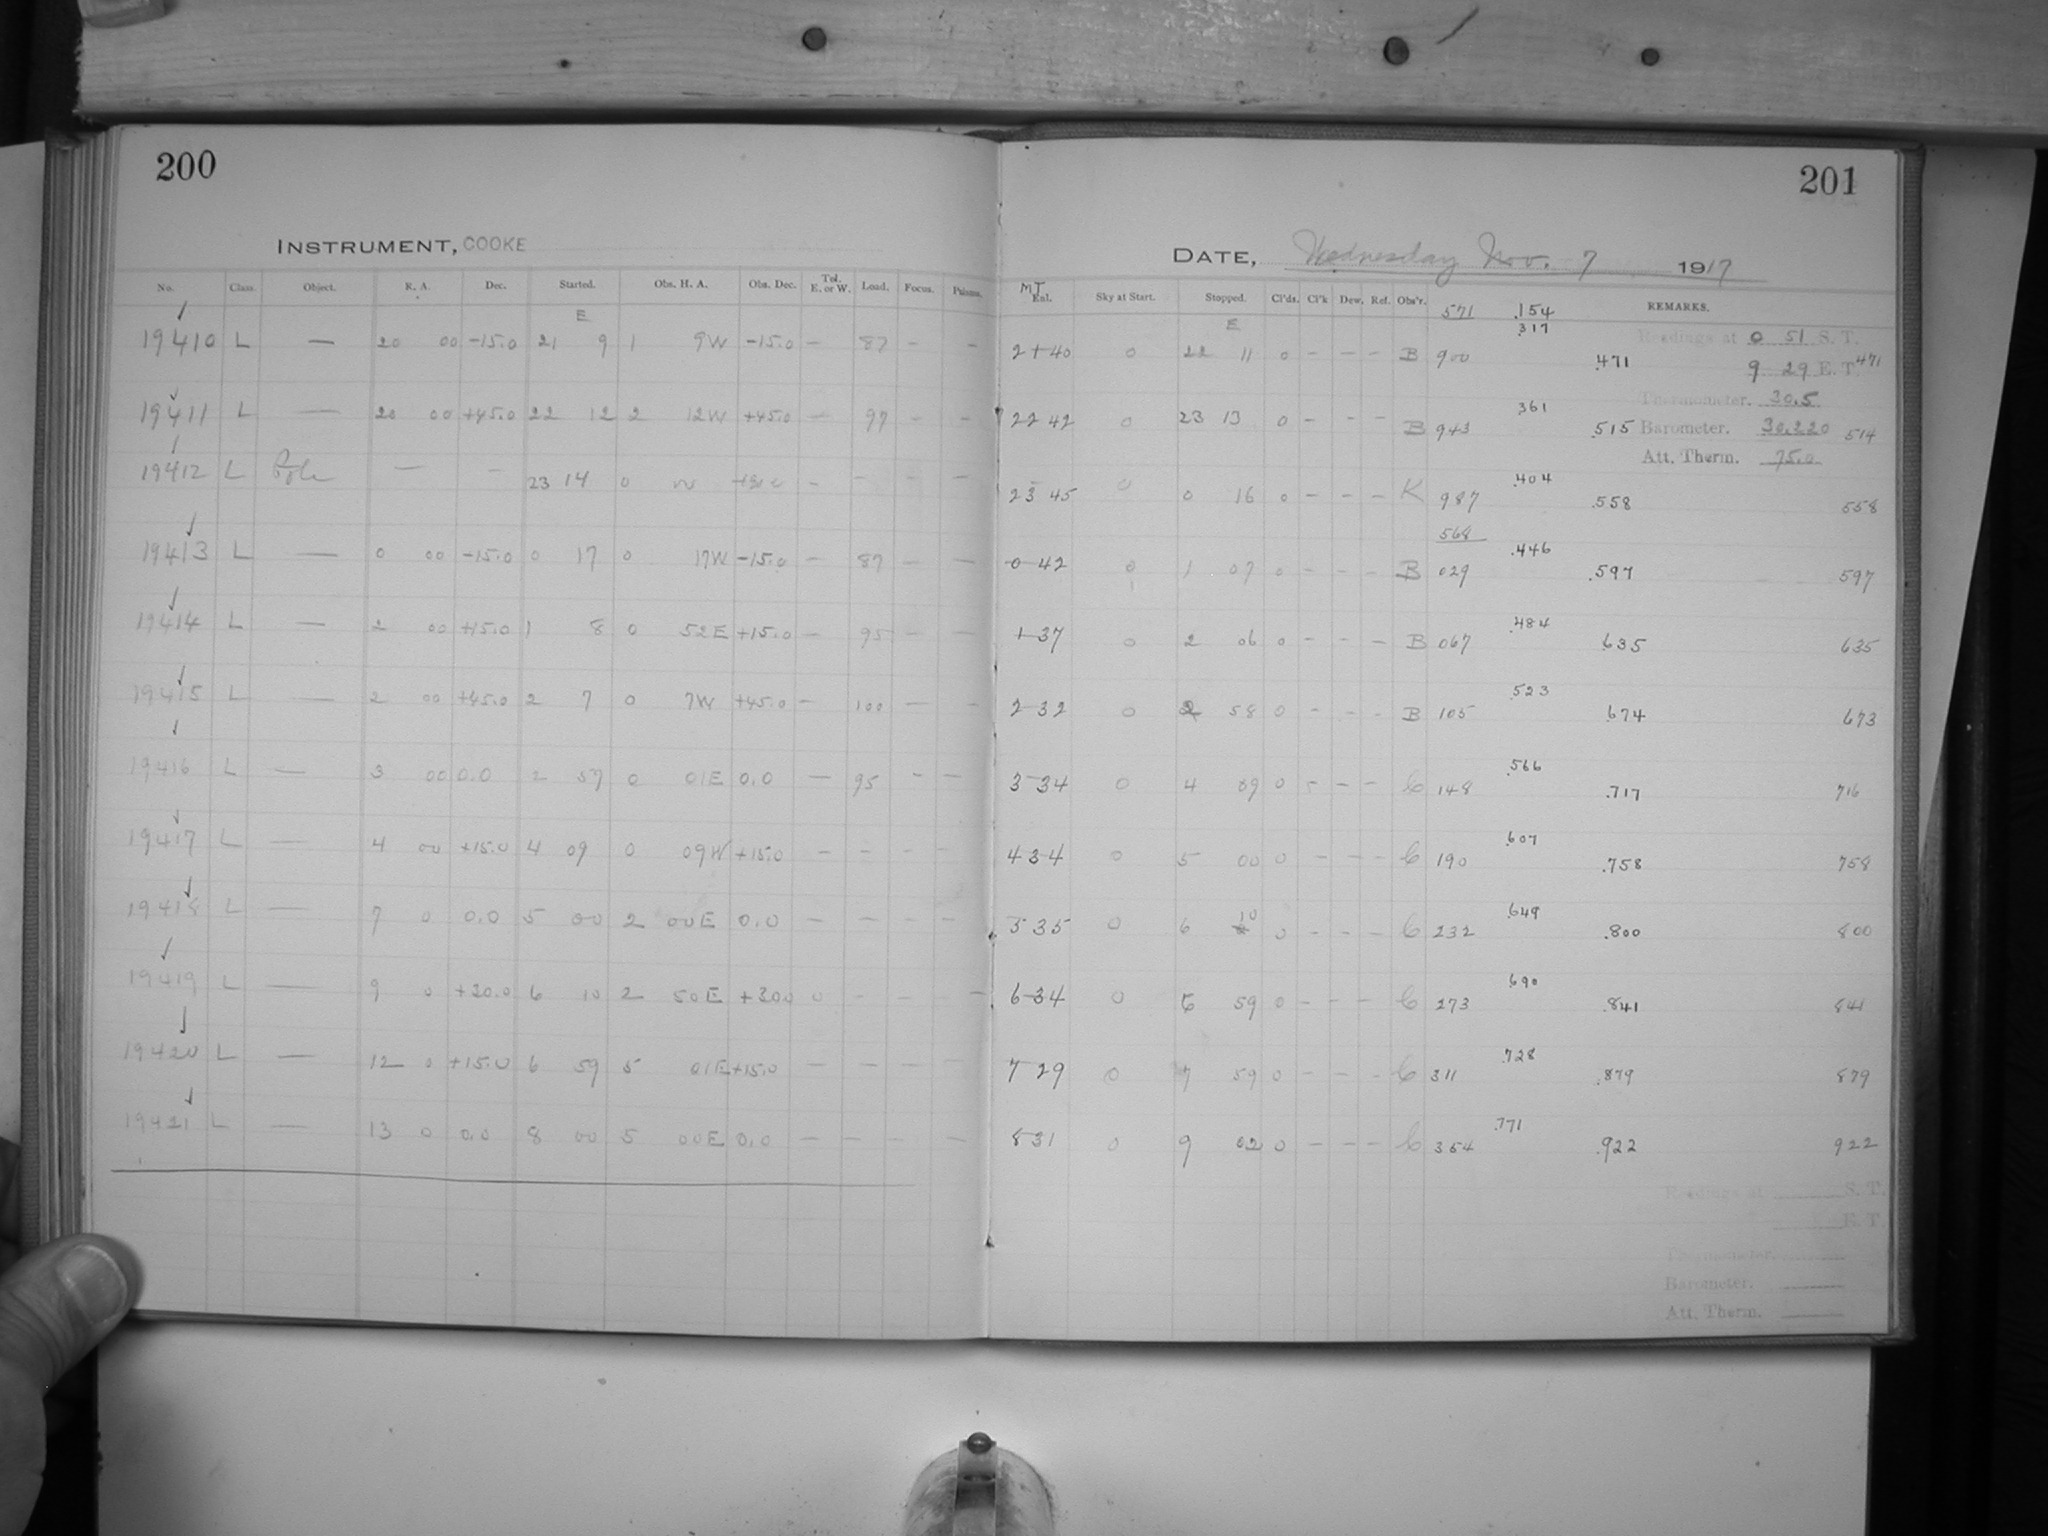 200
INSTRUMENT, COOKE
No. Class. Object. R. A. Dec. Started. Obs. H. A. Obs. Dec. Tel. E. or W. Load. Focus. Prisms.
E
19410 L — 20 00 -15.0 21 9 1 9W -15.0 — 87 - -
19411 L — 20 00 +45.0 22 12 2 12W +45.0 — 97 - -
19412 L Pole — — 23 14 0 W - - - -
19413 L — 0 00 -15.0 0 17 0 17W -15.0 — 87 — —
19414 L — 2 00 +15.0 1 8 0 52E +15.0 — 95 — —
19415 L — 2 00 +45.0 2 7 0 7W +45.0 — 100 — -
19416 L — 3 00 0.0 2 57 0 01E 0.0 — 95 - —
19417 L — 4 00 +15.0 4 09 0 09W +15.0 — - - -
19418 L — 7 0 0.0 5 00 2 00E 0.0 — — — —
19419 L — 9 0 +30.0 6 10 2 50E +300 0 - - —
19420 L — 12 0 +15.0 6 59 5 01E +15.0 — — — —
19421 L — 13 0 0.0 8 00 5 00E 0.0 — — — —
201
DATE, Wednesday Nov. 7 1917
MT
Enl. Sky at Start. Stopped. Cl'ds. Cl'k Dew. Ref. Obs'r. 571 .154 REMARKS.
E .317 Readings at 0 51 S. T.
21 40 0 22 11 0 - - - B 900 .471 9 29 E. T. 471
.361 Thermometer. 30.5
22 42 0 23 13 0 - - - B 943 .515 Barometer. 30.220 514
Att. Therm. 75.0
.404
23 45 0 0 16 0 - - - K 987 .558 558
568
.446
0 42 0 1 07 0 - - - B 029 .597 597
.484
1 37 0 2 06 0 - - - B 067 .635 635
.523
2 32 0 2 58 0 - - - B 105 .674 673
.566
3 34 0 4 09 0 - - - C 148 .717 716
.607
4 34 0 5 00 0 - - - C 190 .758 758
.649
5 35 0 6 10 0 - - - C 232 .800 800
.690
6 34 0 6 59 0 - - - C 273 .841 841
.728
7 29 0 7 59 0 - - - C 311 .879 879
.771
8 31 0 9 02 0 - - - C 354 .922 922
Readings at S. T.
E. T.
Thermometer.
Barometer.
Att. Therm.